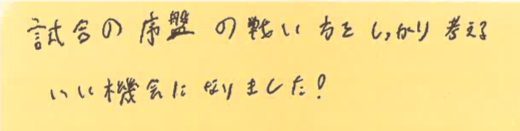 試合の序盤の戦い方をしっかり考える
いい機会になりました!